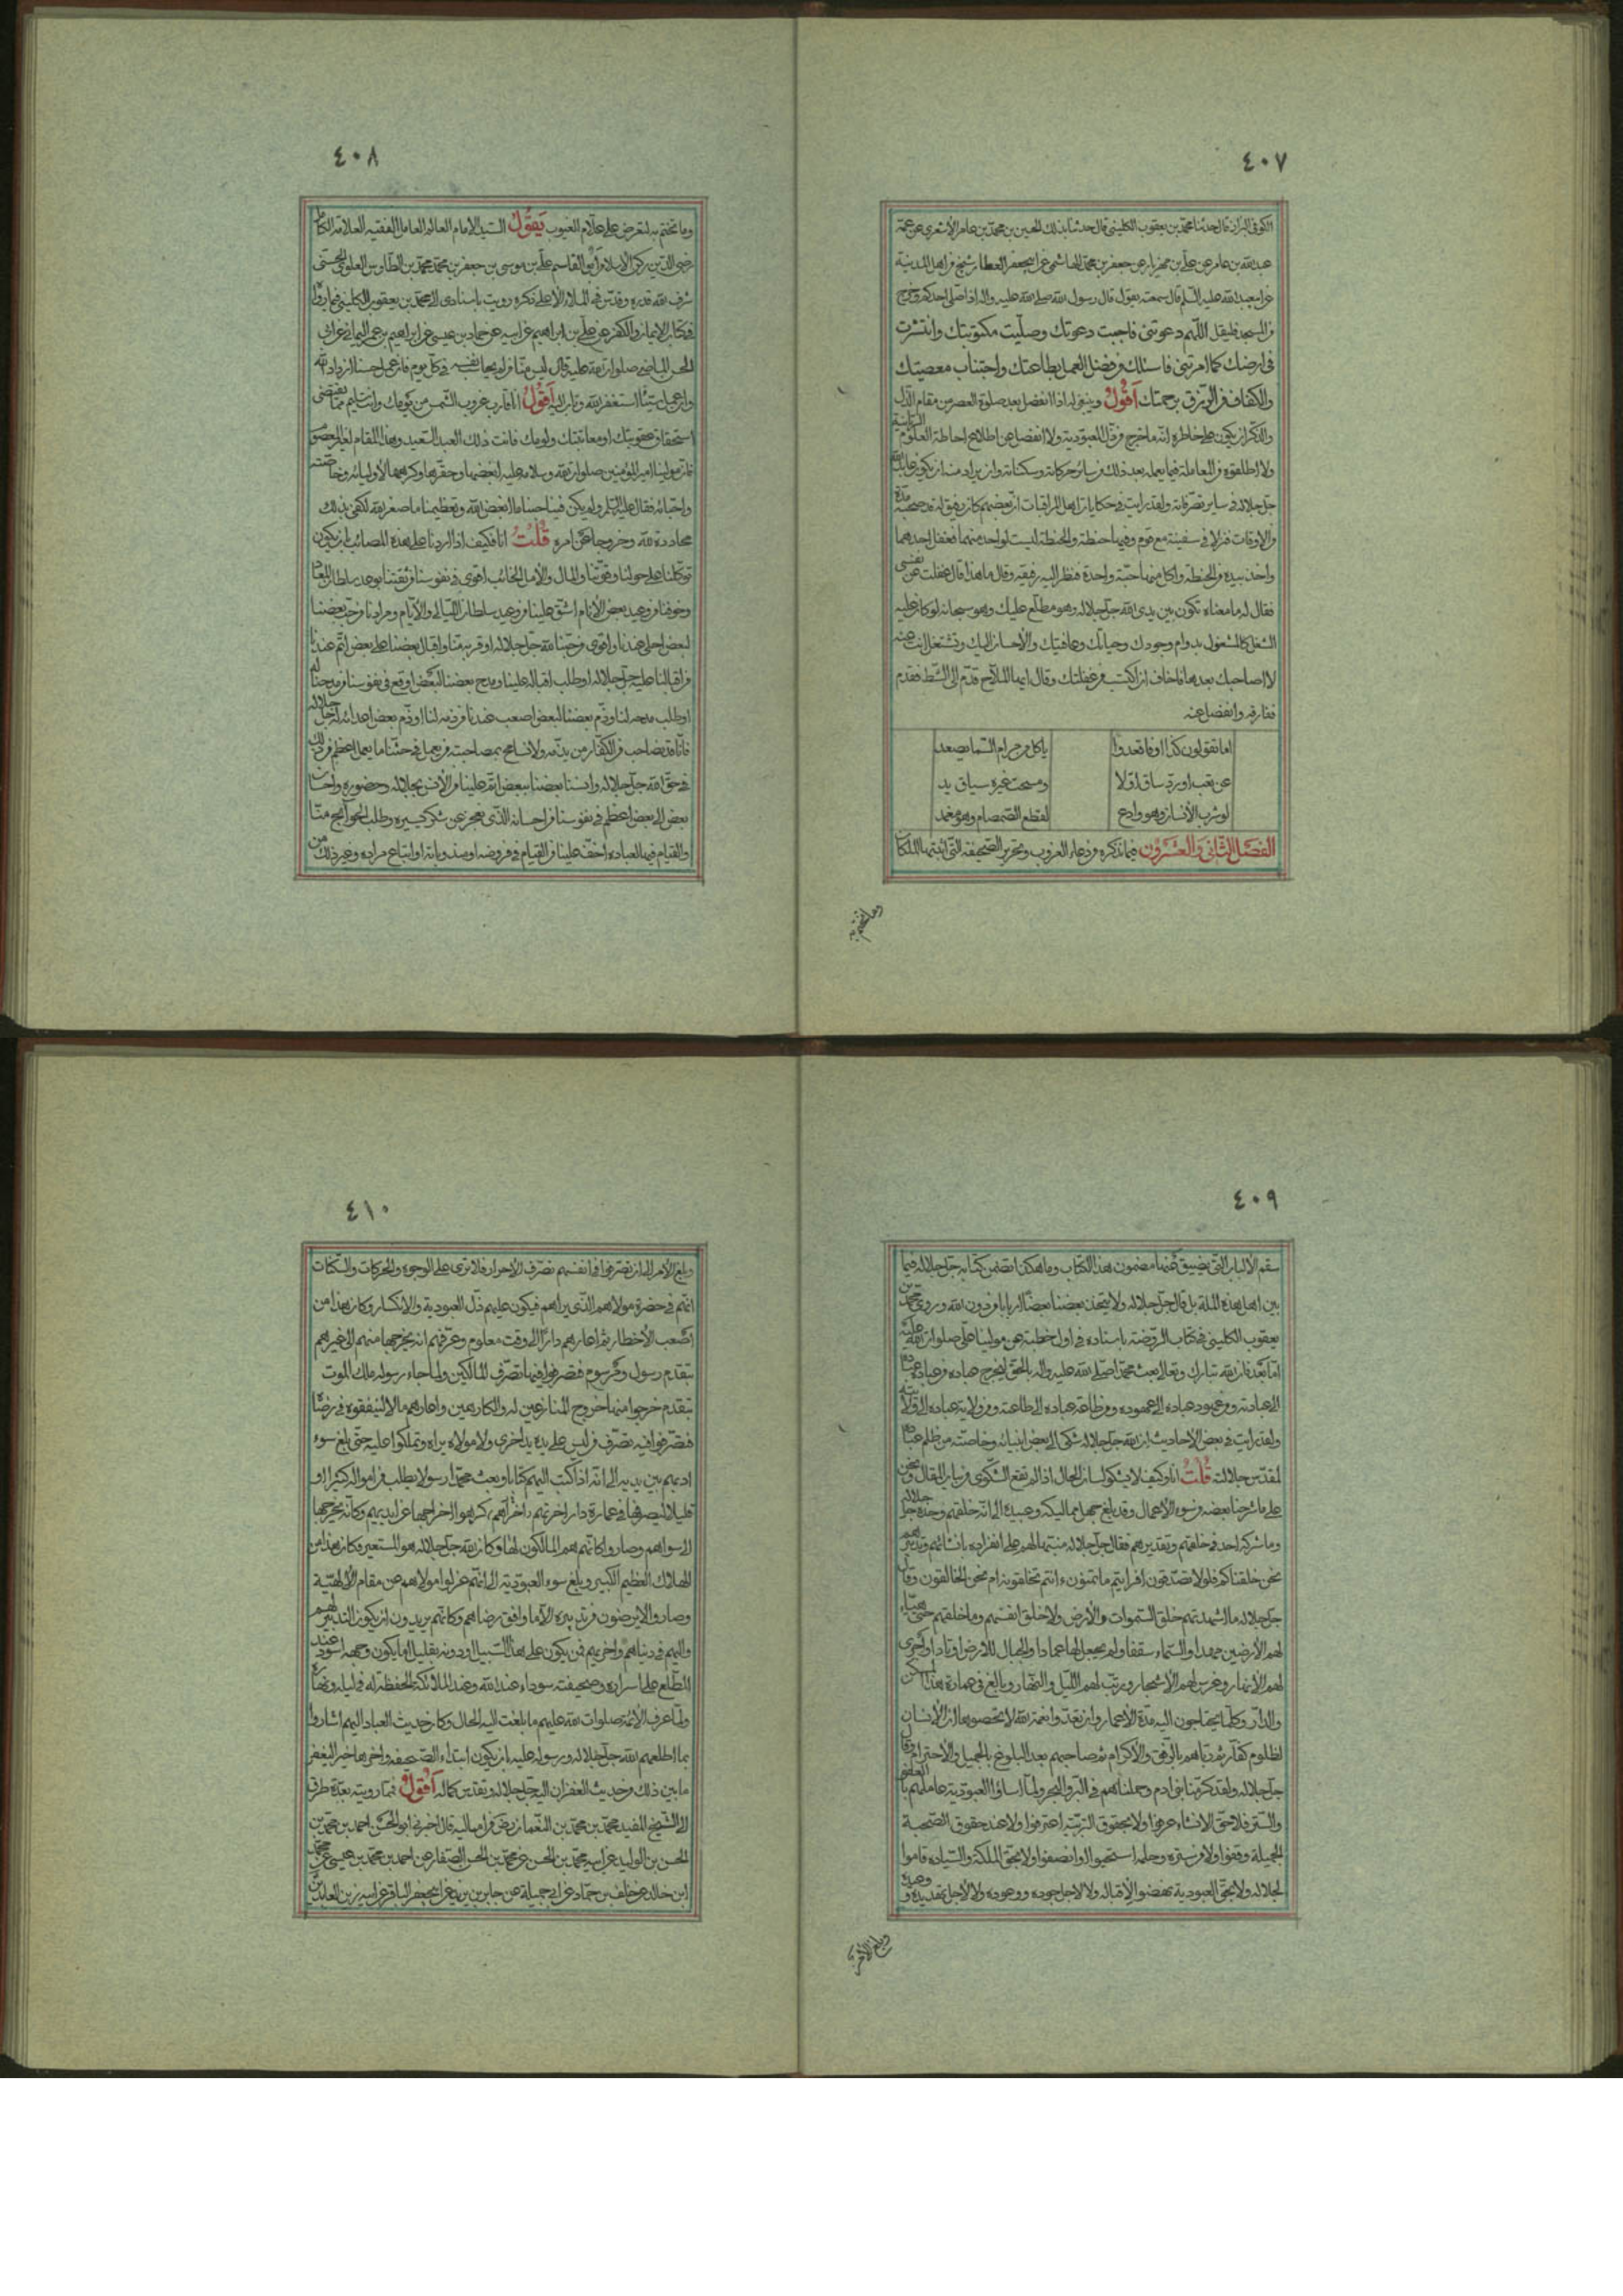 ٤٠٧
الكوفى البزاز قال حدثنا محمد بن يعقوب الكلينى قال حدثنا بذلك الحسين بن محمد بن عامر الأشعرى عن عمه
عبدالله بن عامر عن على بن مهزيار عن جعفر بن محمد الهاشمى عن ابى جعفر العطار شيخ من اهل المدينة
عن ابى عبد الله عليه السلم قال سمعته يقول قال رسول الله صلى الله عليه واله اذا صلى احدكم وخرج
من المسجد فليقل اللهم دعوتنى فاجبت دعوتك وصليت مكتوبتك وانتشرت
فى ارضك كما امرتنى فاسئلك من فضلك العمل بطاعتك واجتناب معصيتك
والكفاف من الرزق برحمتك اَقُولُ وينبغى له اذا انفصل بعد صلوة العصر من مقام الذل
ان يكون على خاطره انه ما خرج من ذل العبودية ولا انفصل عن اطلاع احاطة العلوم الربانية
ولا اطلقوه من المعاملة فيما يعمله بعد ذلك من سائر حركاته وسكناته وان يراد منه ان يكون
جل جلاله فى ساير تصرفاته ولقد رايت فى حكايات اهل المراقبات ان بعضهم كان رفيق له قد صحبه مدة
من الاوقات فنزلا فى سفينة مع قوم وفيها حنطة والحنطة ليست لواحد منهما فغفل احدهما
واخذ بيده من الحنطة واكل منها حبة واحدة فنظر اليه رفيقه وقال ما هذا قال غفلت عن نفسى
فقال له ما معناه تكون بين يدى الله جل جلاله وهو مطلع عليك وهو سبحانه لو كان عليه
الشغل كالمشغول بدوام وجودك وحياتك وعافيتك والأحسان اليك وتشتغل انت عنه
لا اصاحبك بعدها فاخاف ان اكتسب من غفلتك وقال ايها الملاح قدم الى الشط فقدم
ففارقه وانفصل عنه
اما تقولون كذا او فاقعدوا ياكل من رام السما يصعد
عن تعب اورد ساق اولا ومسحت غيره سياق يد
لو شرب الأنسان وهو وادع لقطع الصمصام وهو مغمد
الفَصْلُ الثّانِى وَالْعِشْرُون فيما نذكره من دعاء الغروب وتحرير الصحيفة التى اثبتها الملكان
وما تختم به
٤٠٨
وما تختم به لتعرض على علام الغيوب يَقُولُ السيد الامام العالم العامل الفقيه العلامة الكامل
رضى الدين ركن الاسلام ابو القاسم على بن موسى بن جعفر بن محمد بن محمد بن الطاوس العلوى الحسنى
شرف الله قدره وقدس فى الملاء الأعلى ذكره رويت باسنادى الى محمد بن يعقوب الكلينى فيما رواه
فى كتاب الايمان والكفر عن على بن ابراهيم عن ابيه عن حماد بن عيسى عن ابراهيم بن عمر اليمانى عن ابى
الحسن الماضى صلوات الله عليه قال ليس منا من لم يحاسب نفسه فى كل يوم فان عمل حسنا ازداد الله
وان عمل سيئا استغفر الله وتاب اليه اَقُولُ انا قارب غروب الشمس من يومك وانت سليم مما يقتضى
استحقاق عقوبتك او معاتبتك ولومك فانت ذلك العبد السعيد وهذا المقام لغير المعصوم
فان مولينا امير المؤمنين صلوات الله وسلامه عليه لبغضها وحقرها وكرهها لأوليائه وخاصته
واحبائه فقال عليه السلم ولو لم يكن فينا حبنا ما ابغض الله وتعظيمنا ما صغر الله لكفى بذلك
محاددة لله وخروجا عن امره قُلْتُ انا فكيف اذا زدنا على هذه المصائب ان يكون
توكلنا على حولنا وقوتنا والمال والأمل الخائب اقوى فى نفوسنا من ثقتنا بوعد سلطان المعاد
وخوفنا من وعيد بعض الأنام اشق علينا من وعيد سلطان الليالى والأيام ومرادنا من حب بعضنا
لبعض احلى عندنا واقوى من حبنا لله جل جلاله او قربه منا واقبال بعضنا على بعض اتم عندنا
من اقبالنا عليه جل جلاله او طلب اقباله علينا ومدح بعضنا لبعض اوقع فى نفوسنا من مدحنا له
او طلب مدحه لنا وذم بعضنا لبعض اصعب عندنا من ذمه لنا او ذم بعض اعدائه له جل جلاله
فانا قد نصاحب من الكفار من يذمه ولا نسامح بمصاحبته من يعمل فى حقنا ما يعمل اعظم من ذلك
فى حق الله جل جلاله وانسنا بعضنا ببعض اتم علينا من الأنس بجلاله وحضوره واحسان
بعض الى بعض اعظم فى نفوسنا من احسانه الذى نعجز عن شكر كبيره وطلب الحوائج منا
والقيام فيها لعباده اخف علينا من القيام فى فروضه او مندوباته او اتباع مراده وغير ذلك من
٤٠٩
سقم الألباب التى يضيق عنها مضمون هذا الكتاب وما هكذا تضمن كتابه جل جلاله فيما
بين اهل هذه الملة بل قال جل جلاله ولا يتخذ بعضنا بعضا اربابا من دون الله وروى محمد بن
يعقوب الكلينى فى كتاب الروضة باسناده فى اول خطبة عن مولينا على صلوات الله عليه
اما بعد فان الله تبارك وتعالى بعث محمدا صلى الله عليه واله بالحق ليخرج عباده من عبادة عباده
الى عبادته ومن عهود عباده الى عهوده ومن طاعة عباده الى طاعته ومن ولاية عباده الى ولايته
ولقد رايت فى بعض الاحاديث ان الله جل جلاله شكى الى بعض انبيائه وخاصته من ظلم عباده
لمقدس جلالته قُلْتُ انا وكيف لا يشكو لسان الحال اذا لم تقع الشكوى من لسان المقال ونحن
على ما شرحنا بعضه من سوء الأعمال وقد بلغ جهل مماليكه وعبيده الى انه خلقهم وحده جل جلاله
وما شركه احد فى خلقهم وتقديرهم فقال جل جلاله منبها لهم على انفراده بانشائهم وتدبيرهم
نحن خلقناكم فلولا تصدقون افرايتم ما تمنون ءانتم تخلقونه ام نحن الخالقون وقال
جل جلاله ما اشهدتهم خلق السموات والأرض ولا خلق انفسهم وما خلقهم حتى هيأ
لهم الأرضين مهدا والسماء سقفا ولم يجعل لها عمادا والجبال للارض اوتادا واجرى
لهم الأنهار وغرس لهم الأشجار ورتب لهم الليل والنهار وبالغ فى عمارة هذا المسكن
والدار وكلما يحتاجون اليه مدة الأعمار وان تعدوا نعمة الله لا تحصوها ان الأنسان
لظلوم كفار ثم رباهم بالرفق والأكرام ثم صاحبهم بعد البلوغ بالجميل والأحترام وقال
جل جلاله ولقد كرمنا بنى ادم وحملناهم فى البر والبحر ولما اساؤا العبودية عاملهم بالعفو
والستر فلا حق الانشاء عرفوا ولا بحقوق التربية اعترفوا ولا عند حقوق الصحبة
الجميلة وقفوا ولا من ستره وحلمه استحيوا وانصفوا ولا بحق الملكة والسياده قاموا
لجلاله ولا بحق العبودية نهضوا لأقباله ولا لاجل جوده ووجوده ولا لأجل تهديده ووعيده
وبلغ الأمر
٤١٠
وبلغ الأمر الى ان تصرفوا فى انفسهم تصرف الأحرار فلا ترى على الوجوه والحركات والسكنات
انهم فى حضرة مولاهم الذى يراهم فيكون عليهم ذل العبودية والانكسار وكان هذا من
اصعب الأخطار ثم اعارهم دارا الى وقت معلوم وعرفهم انه يخرجها منهم الى غيرهم
بتقدم رسول ومرسوم فتصرفوا فيها تصرف المالكين ولما جاء رسوله ملك الموت
بتقدم خرجوا منها خروج المنازعين له والكارهين واعارهم مالا لينفقوه فى رضاه
فتصرفوا فيه تصرف من ليس على يده يد اخرى ولا مولاه يراه وتملكوا عليه حتى بلغ سوء
ادبهم بين يديه الى انه اذا كتب اليهم كتابا وبعث محمدا رسولا يطلب من امواله كثيرا او
قليلا ليصرفها فى عمارة دار اخرتهم واخراهم كرهوا اخراجها عن ايديهم وكانه يخرجها
الى سواهم وصاروا كانهم هم المالكون لها وكان الله جل جلاله هو المستعير فكان هذا من
الهلاك العظيم الكبير وبلغ سوء العبودية الى انهم عزلوا مولاهم عن مقام الألهية
وصاروا لا يرضون من تدبيره الا ما وافق رضاهم وكانهم يريدون ان يكون التدبير لهم
واليهم فى دنياهم واخريهم فمن يكون على هذا السبيل او دونه بقليل اما يكون وجهه اسود عند
المطلع على اسراره وصحيفته سوداء عند الله وعند الملائكة الحفظة له فى ليله ونهاره
ولما عرف الأئمة صلوات الله عليهم ما بلغت اليه الحال وكان حديث العباد اليهم اشاروا
بما اطلعهم الله جل جلاله ورسوله عليه ان يكون ابتداء الصحيفة واخرها خير اليغفر
ما بين ذلك وحديث الغفران اليه جل جلاله وتقدس كماله اَقُولُ فيما رويته بعدة طرق
الى الشيخ المفيد محمد بن محمد بن النعمان رض من اماليه قال اخبرنى ابو الحسن احمد بن محمد بن
الحسن بن الوليد عن ابيه محمد بن الحسن عن محمد بن الحسن الصفار عن احمد بن محمد بن عيسى عن محمد
ابن خالد عن خلف بن حماد عن ابى جميلة عن جابر بن يزيد عن ابى جعفر الباقر عن ابيه زين العابدين